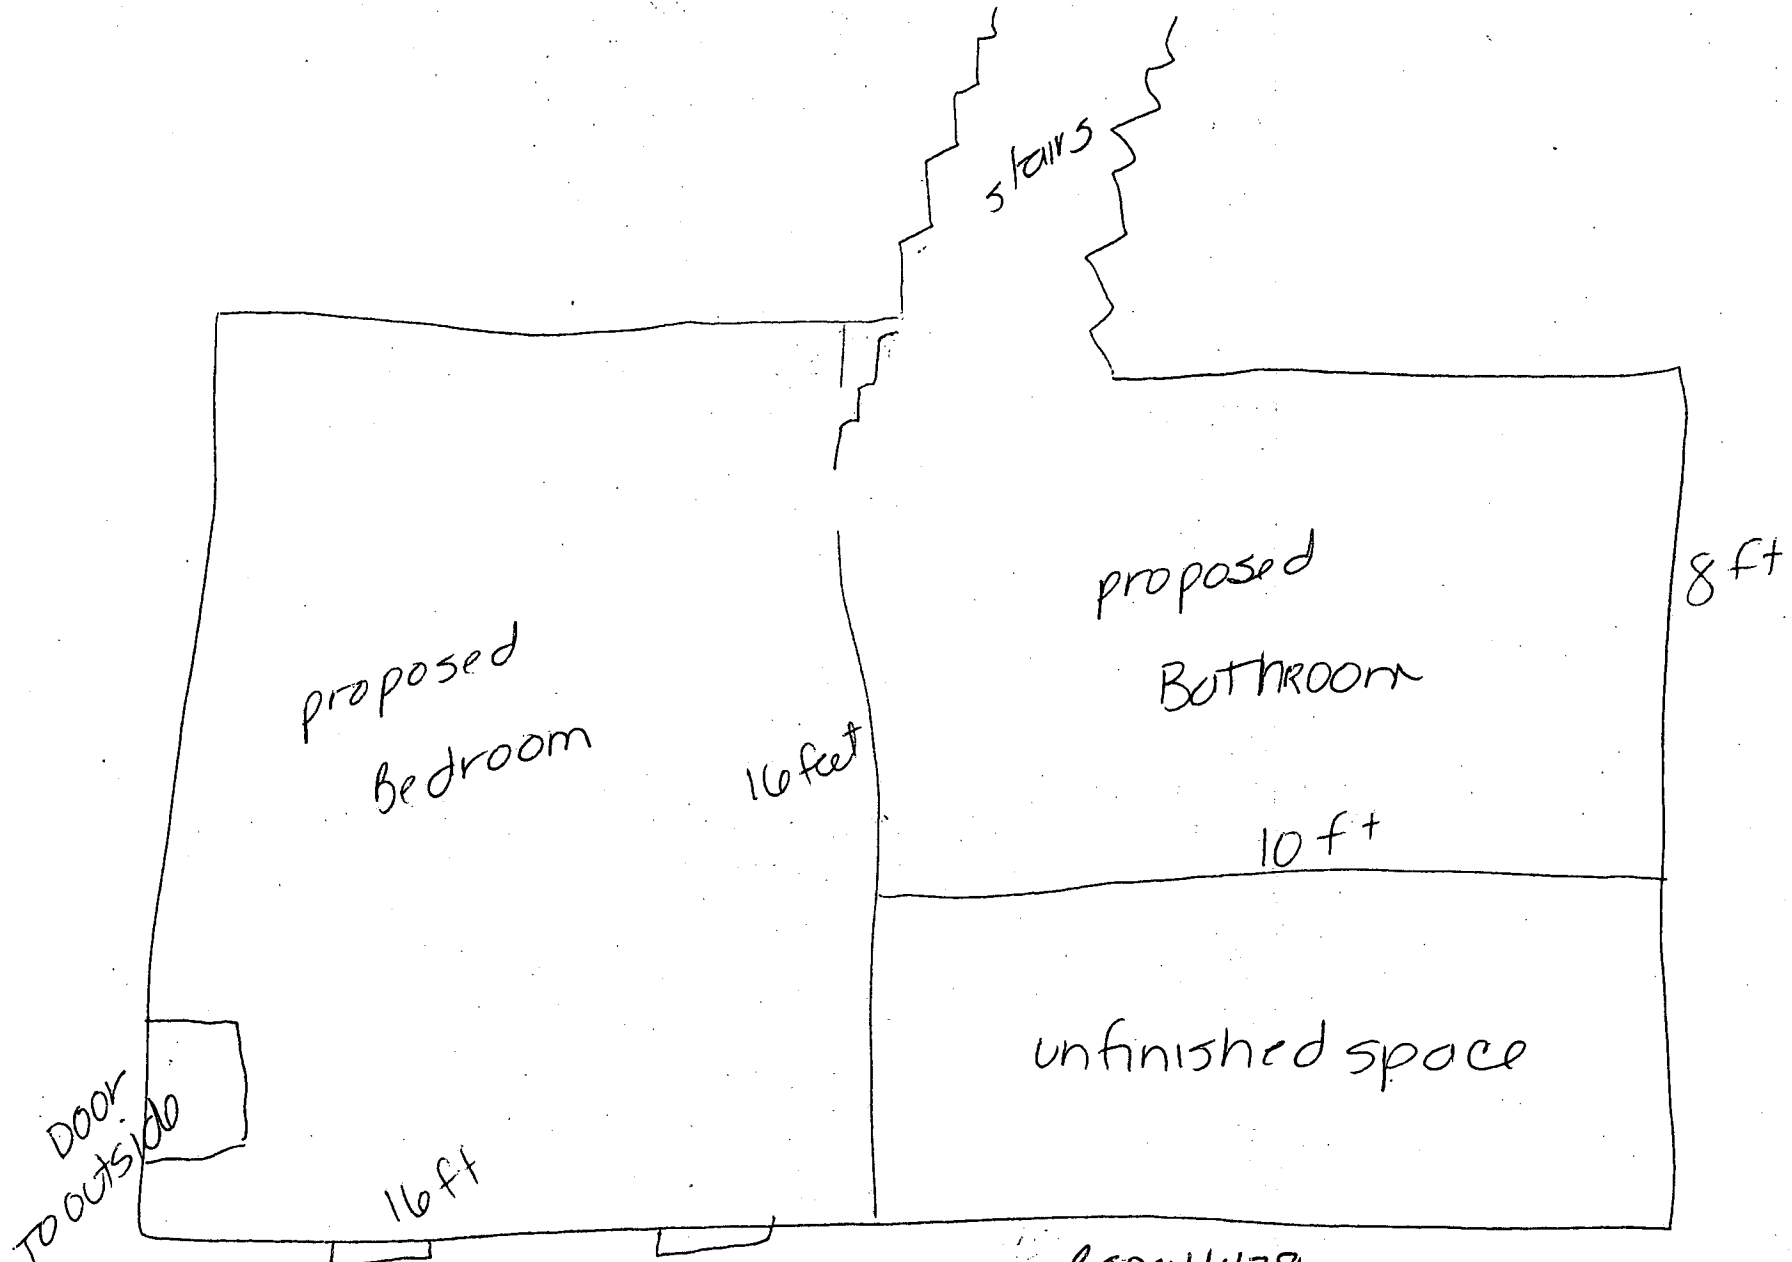 stairs
proposed
Bathroom
8 ft
proposed
Bedroom
16 feet
10 ft
unfinished space
Door
To outside
16 ft